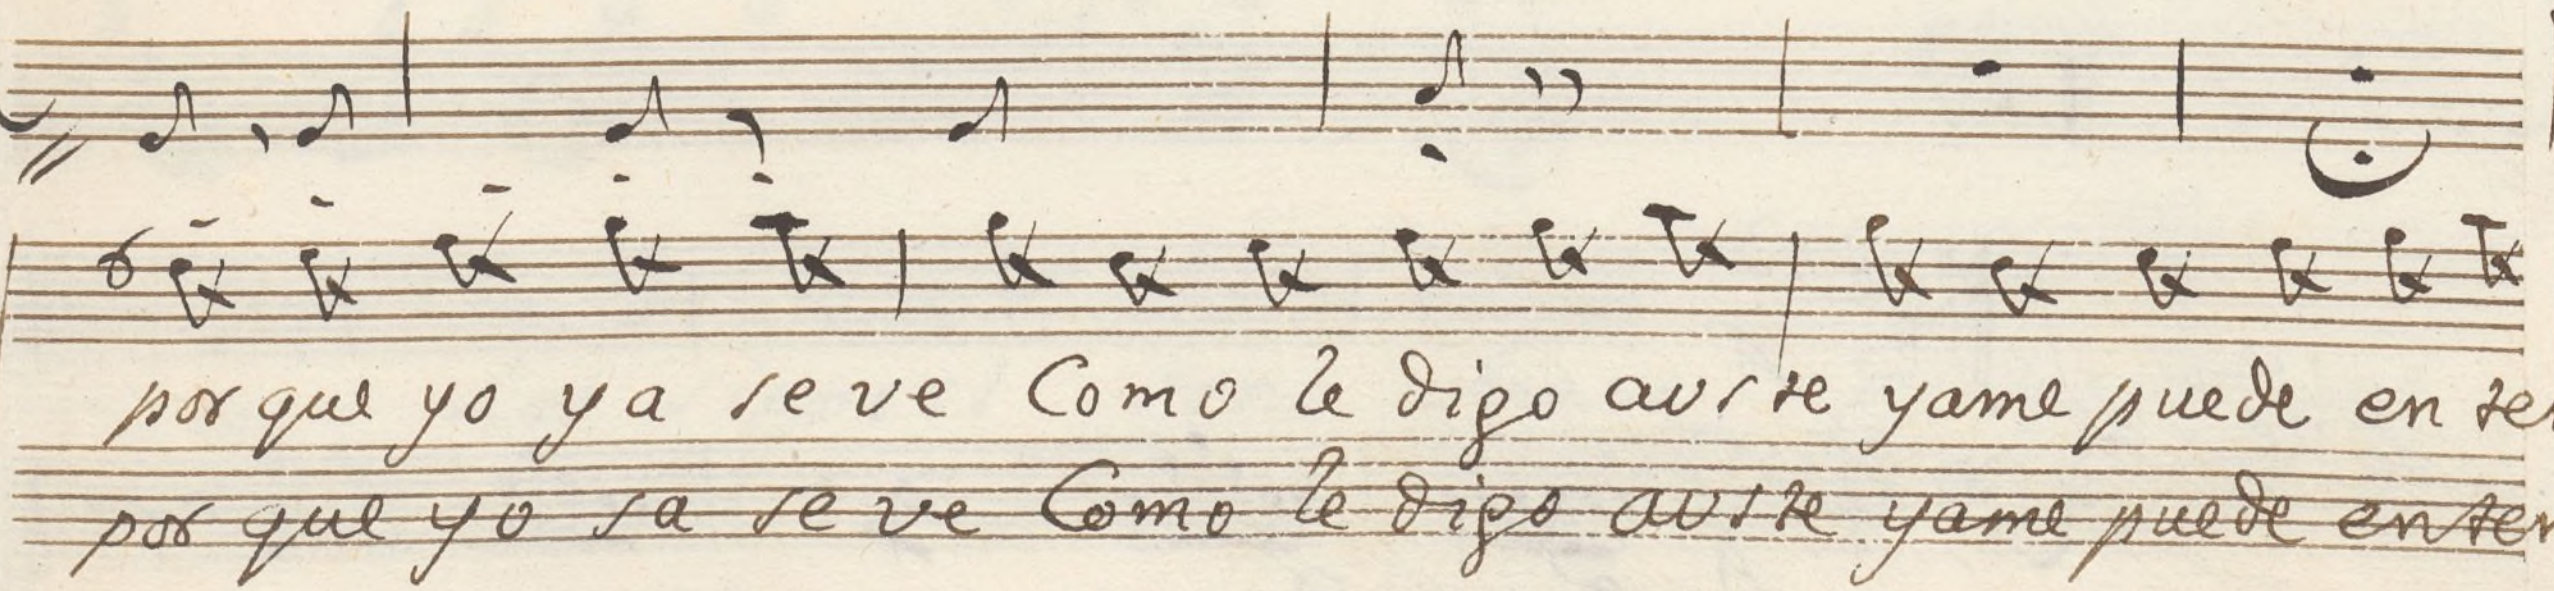 por que yo ya se ve Como le digo a uste yame puede en ten
por que yo sa se ve Como le digo a uste yame puede enten